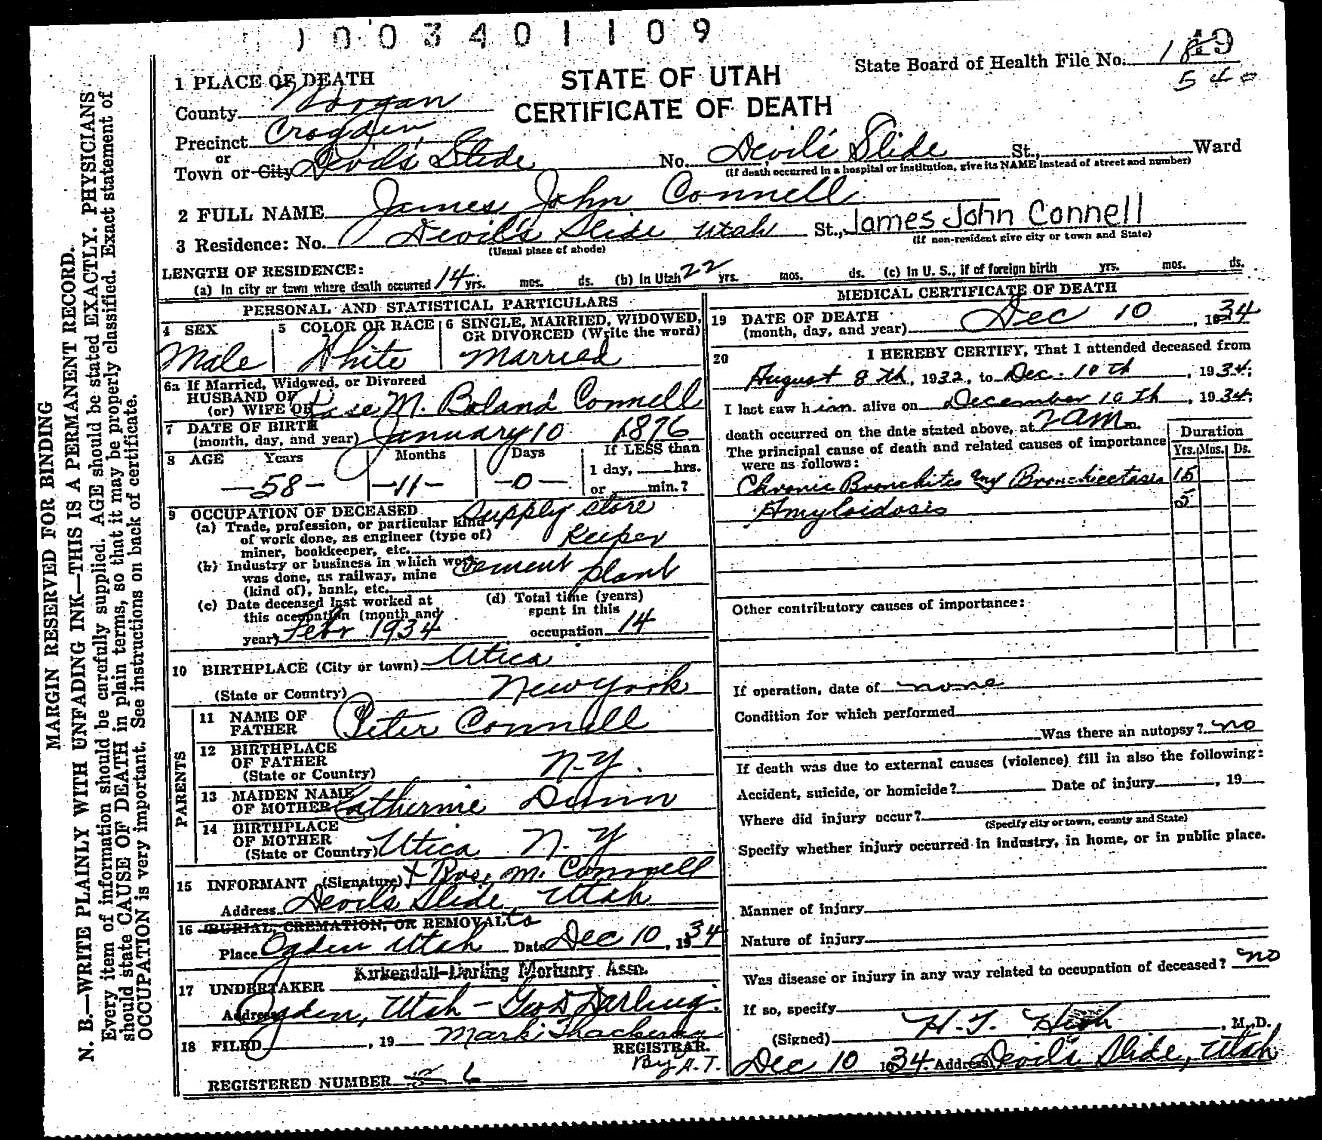 1003401109
STATE OF UTAH
CERTIFICATE OF DEATH
State Board of Health File No. 18
49
540
1 PLACE OF DEATH
County Morgan
Precinct Croyden
or
Town or City Devil's Slide No. Devil's Slide St., Ward
(If death occurred in a hospital or institution, give its NAME instead of street and number)
2 FULL NAME James John Connell
3 Residence: No. Devil's Slide Utah St., James John Connell
(Usual place of abode) (If non-resident give city or town and State)
LENGTH OF RESIDENCE:
(a) In city or town where death occurred 14 yrs. mos. ds. (b) In Utah 22 yrs. mos. ds. (c) In U. S., if of foreign birth yrs. mos. ds.
PERSONAL AND STATISTICAL PARTICULARS
4 SEX Male
5 COLOR OR RACE White
6 SINGLE, MARRIED, WIDOWED, OR DIVORCED (Write the word) Married
6a If Married, Widowed, or Divorced
HUSBAND OF
(or) WIFE OF Rose M. Boland Connell
7 DATE OF BIRTH
(month, day, and year) January 10 1876
8 AGE Years Months Days If LESS than
1 day, hrs.
—58— —11— —0— or min.?
9 OCCUPATION OF DECEASED Supply store
(a) Trade, profession, or particular kind
of work done, as engineer (type of)
miner, bookkeeper, etc. Keeper
(b) Industry or business in which work
was done, as railway, mine
(kind of), bank, etc. Cement plant
(c) Date deceased last worked at
this occupation (month and
year) Febr 1934
(d) Total time (years)
spent in this
occupation 14
10 BIRTHPLACE (City or town) Utica
(State or Country) New York
PARENTS
11 NAME OF
FATHER Peter Connell
12 BIRTHPLACE
OF FATHER
(State or Country) N.Y.
13 MAIDEN NAME
OF MOTHER Catherine Dunn
14 BIRTHPLACE
OF MOTHER
(State or Country) Utica N.Y
15 INFORMANT (Signature) x Rose M. Connell
Address Devil's Slide, Utah
16 BURIAL, CREMATION, OR REMOVAL to
Place Ogden Utah Date Dec 10, 1934
17 UNDERTAKER Kirkendall-Darling Mortuary Assn.
Address Ogden, Utah - Geo D Darling.
18 FILED , 19 Mark Thackeray
REGISTRAR.
By A.T.
REGISTERED NUMBER 6
MEDICAL CERTIFICATE OF DEATH
19 DATE OF DEATH
(month, day, and year) Dec 10, 1934
20 I HEREBY CERTIFY, That I attended deceased from
August 8th, 1932, to Dec. 10th, 1934;
I last saw him alive on December 10th, 1934;
death occurred on the date stated above, at 2 am m.
The principal cause of death and related causes of importance
were as follows:
Duration
Yrs. Mos. Ds.
Chronic Bronchites and Bronchiectasis 15
Amyloidosis 5
Other contributory causes of importance:
If operation, date of none
Condition for which performed
Was there an autopsy? no
If death was due to external causes (violence) fill in also the following:
Accident, suicide, or homicide? Date of injury , 19
Where did injury occur?
(Specify city or town, county and State)
Specify whether injury occurred in industry, in home, or in public place.
Manner of injury
Nature of injury
Was disease or injury in any way related to occupation of deceased? no
If so, specify
(Signed) , M. D.
Dec 10 1934. Address Devil's Slide, Utah
MARGIN RESERVED FOR BINDING
N. B.—WRITE PLAINLY WITH UNFADING INK—THIS IS A PERMANENT RECORD.
Every item of information should be carefully supplied. AGE should be stated EXACTLY. PHYSICIANS
should state CAUSE OF DEATH in plain terms, so that it may be properly classified. Exact statement of
OCCUPATION is very important. See instructions on back of certificate.